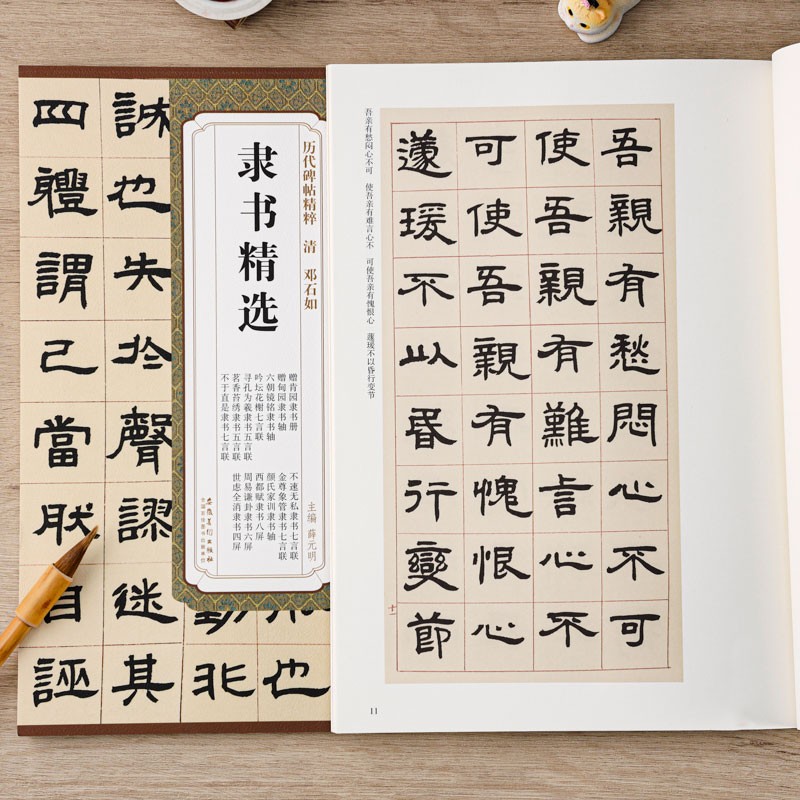 历代碑帖精粹 清 邓石如
隶书精选
赠肯园隶书册
赠甸园隶书轴
六朝镜铭隶书轴
吟坛花榭七言联
寻孔为羲隶书五言联
茗香苔绣隶书五言联
不于直是隶书七言联
不速无私隶书七言联
金尊象管隶书七言联
颜氏家训隶书轴
西都赋隶书八屏
周易谦卦隶书六屏
世虑全消隶书四屏
主编 薛元明
安徽美術出版社
全国百佳图书出版单位
也
動非
誠也失於聲謬迷其
四體謂己當肰自誣
吾親有愁悶心不可
使吾親有難言心不
可使吾親有愧恨心
蘧瑗不以昏行變節
吾亲有愁闷心不可 使吾亲有难言心不 可使吾亲有愧恨心 蘧瑗不以昏行变节
11